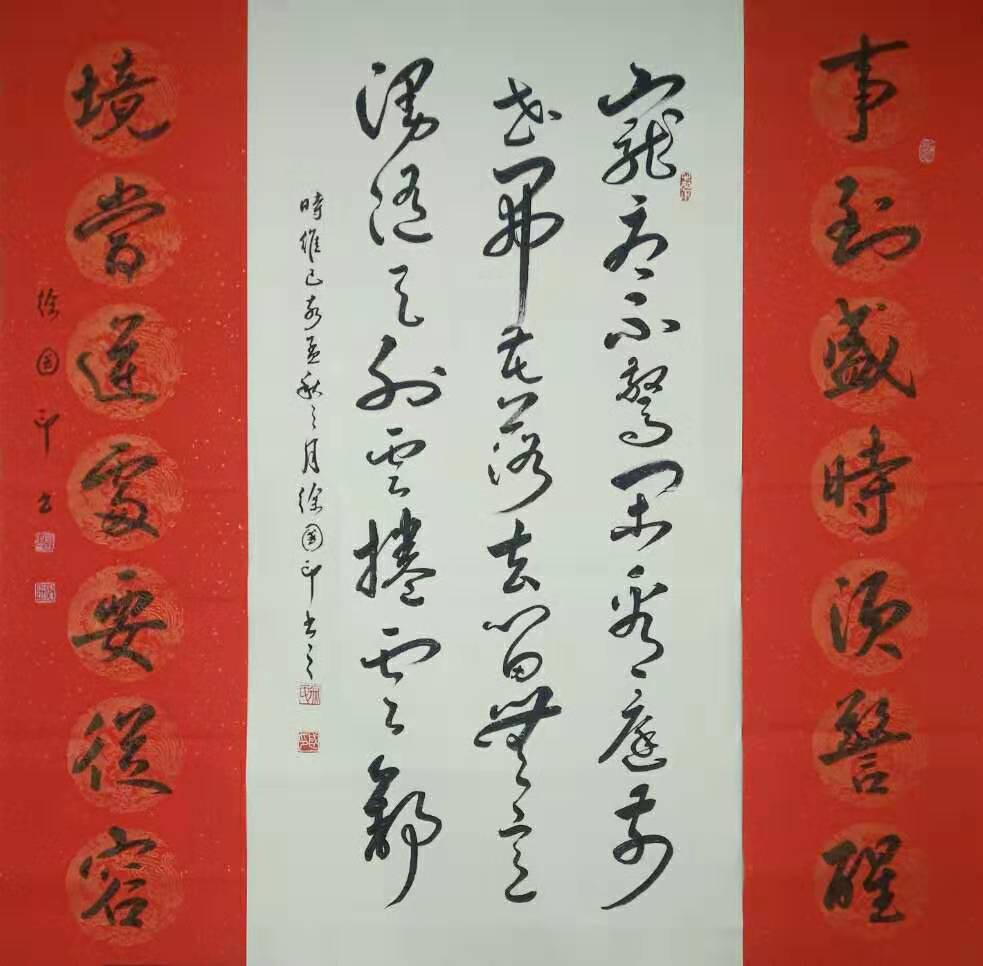 事到盛時須警醒
寵辱不驚閑看庭前
花開花落去留無意
漫隨天外雲捲雲舒
時維己亥孟秋之月徐國印書之
境當逆處要從容
徐國印書